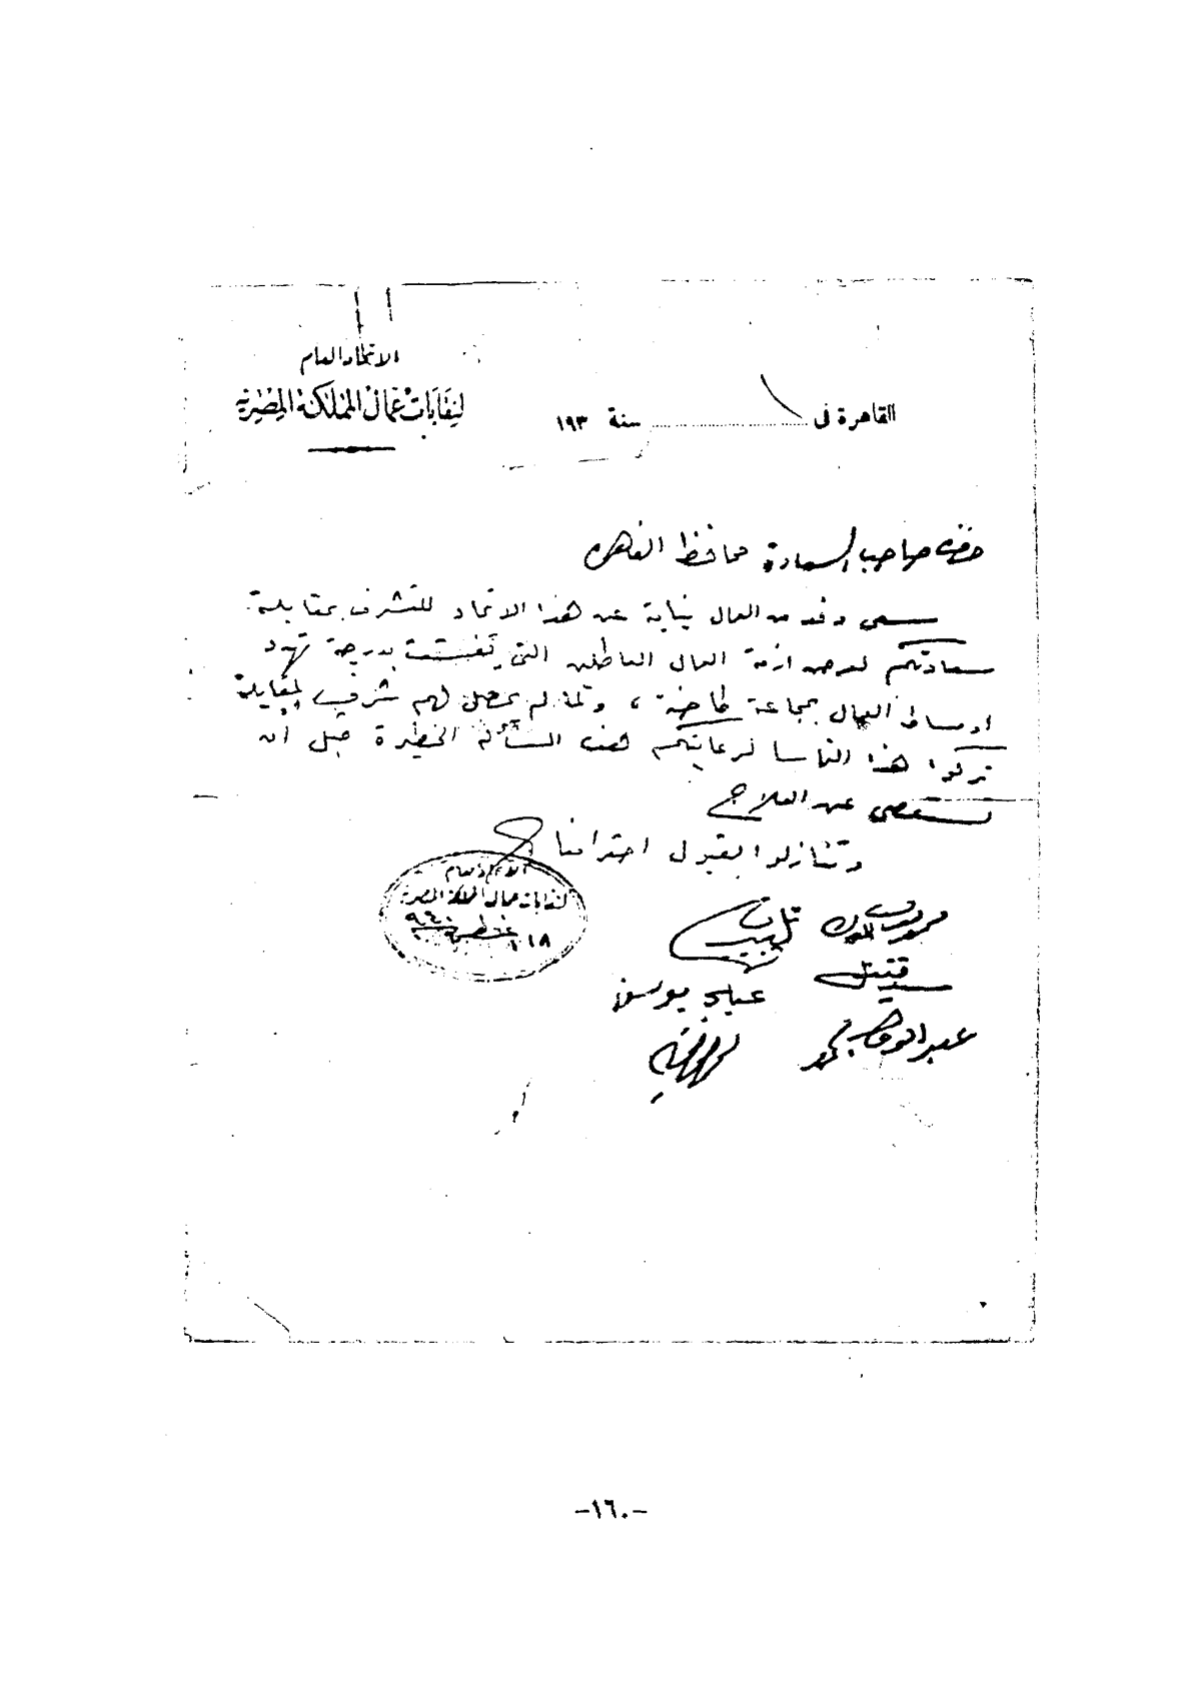 الاتحاد العام
لنقابات عمال المملكة المصرية
القاهرة فى ............ سنة ١٩٣
حضرة صاحب السعادة محافظ القاهرة
سعى وفد من العمال نيابة عن هذا الاتحاد للتشرف بمقابلة
سعادتكم لعرض ازمة العمال العاطلين التى تفشت بدرجة تهدد
اوساط العمال بمجاعة طاحنة ، ولما لم يحصل لهم شرف المقابلة
تركوا هذا التماسا لرعايتكم هذه المسألة الخطيرة قبل ان
تستعصى عن العلاج
وتنازلوا بقبول احترامنا
الاتحاد العام
لنقابات عمال المملكة المصرية
١٨ اغسطس
سيد قنديل
يوسف
عبد الوهاب محمد
-١٦٠-